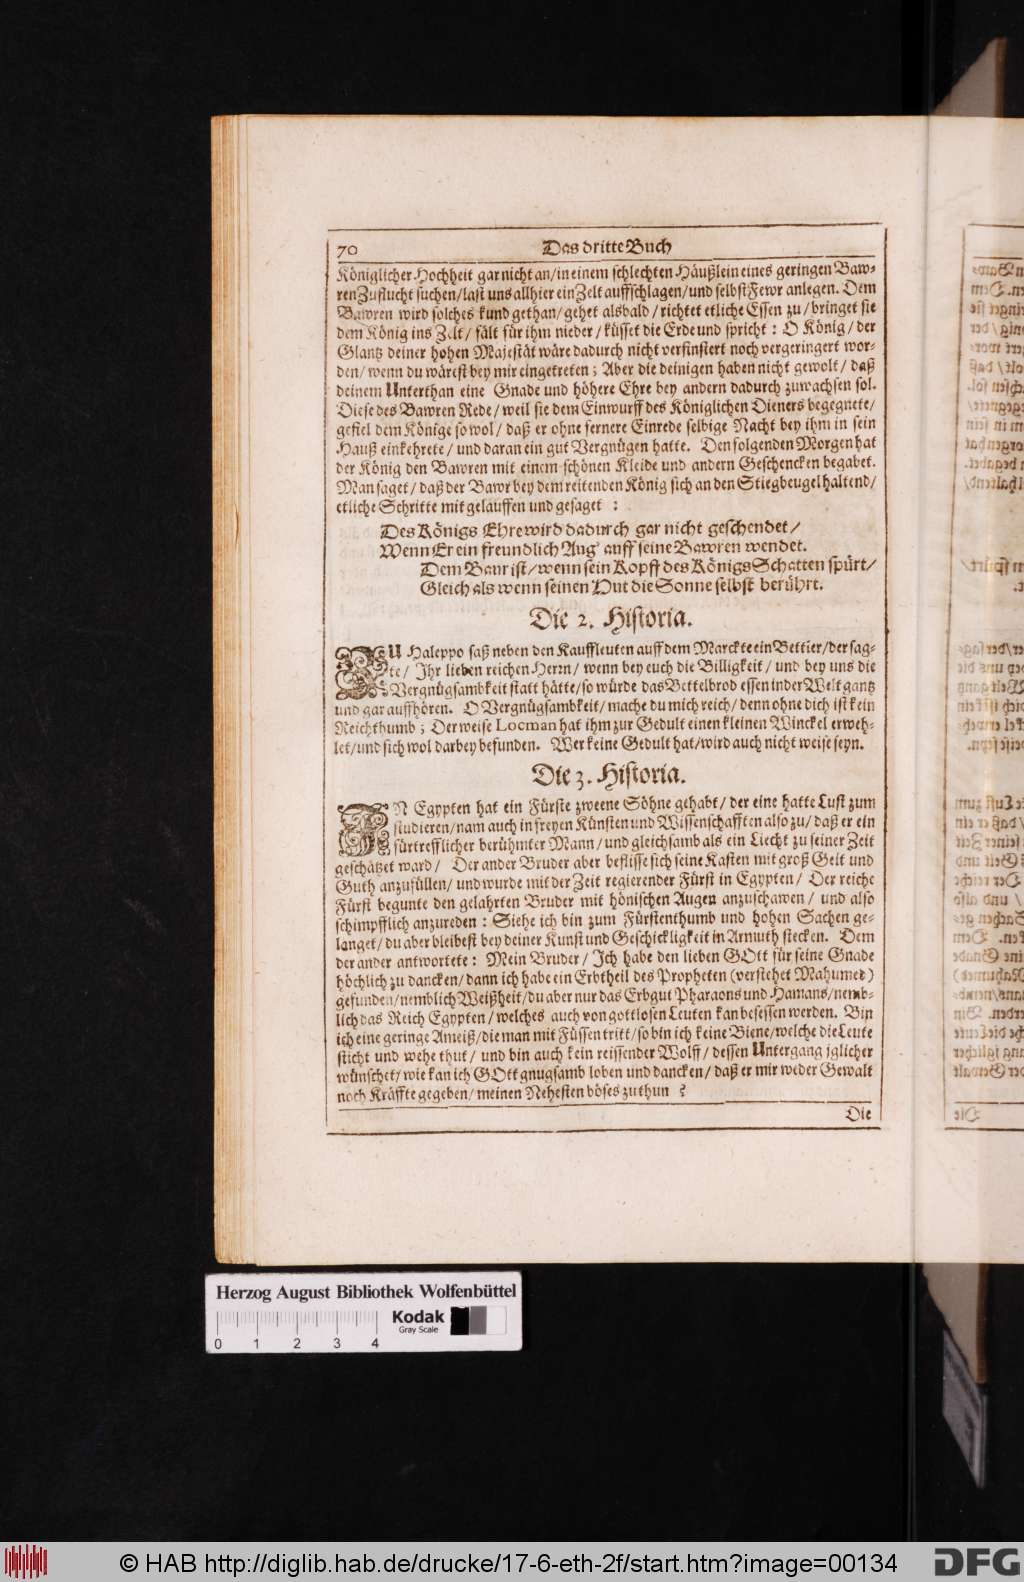 70 Das dritte Buch
Königlicher Hochheit gar nicht an/ in einem schlechten Häußlein eines geringen Baw-
ren Zuflucht suchen/ last uns allhier ein Zelt auffschlagen/ und selbst Fewr anlegen. Dem
Bawren wird solches kund gethan/ gehet alsbald/ richtet etliche Essen zu/ bringet sie
dem König ins Zelt/ fält für ihm nieder/ küsset die Erde und spricht: O König/ der
Glantz deiner hohen Majestät wäre dadurch nicht verfinstert noch vergeringert wor-
den/ wenn du wärest bey mir eingetreten; Aber die deinigen haben nicht gewolt/ daß
deinem Unterthan eine Gnade und höhere Ehre bey andern dadurch zuwachsen sol.
Diese des Bawren Rede/ weil sie dem Einwurff des Königlichen Dieners begegnete/
gefiel dem Könige so wol/ daß er ohne fernere Einrede selbige Nacht bey ihm in sein
Hauß einkehrete/ und daran ein gut Vergnügen hatte. Den folgenden Morgen hat
der König den Bawren mit einem schönen Kleide und andern Geschencken begabet.
Man saget/ daß der Bawr bey dem reitenden König sich an den Stiegbeugel haltend/
etliche Schritte mit gelauffen und gesaget:
Des Königs Ehre wird dadurch gar nicht geschendet/
Wenn Er ein freundlich Aug' auff seine Bawren wendet.
Dem Baur ist/ wenn sein Kopff des Königs Schatten spürt/
Gleich als wenn seinen Hut die Sonne selbst berührt.
Die 2. Historia.
ZU Haleppo saß neben den Kauffleuten auff dem Marckte ein Bettler/ der sag-
te/ Ihr lieben reichen Herrn/ wenn bey euch die Billigkeit/ und bey uns die
Vergnügsambkeit statt hätte/ so würde das Bettelbrod essen in der Welt gantz
und gar auffhören. O Vergnügsambkeit/ mache du mich reich/ denn ohne dich ist kein
Reichthumb; Der weise Locman hat ihm zur Gedult einen kleinen Winckel erweh-
let/ und sich wol darbey befunden. Wer keine Gedult hat/ wird auch nicht weise seyn.
Die 3. Historia.
IN Egypten hat ein Fürste zweene Söhne gehabt/ der eine hatte Lust zum
studieren/ nam auch in freyen Künsten und Wissenschafften also zu/ daß er ein
fürtrefflicher berühmter Mann/ und gleichsamb als ein Liecht zu seiner Zeit
geschätzet ward/ Der ander Bruder aber beflisse sich seine Kasten mit groß Gelt und
Guth anzufüllen/ und wurde mit der Zeit regierender Fürst in Egypten/ Der reiche
Fürst begunte den gelahrten Bruder mit hönischen Augen anzuschawen/ und also
schimpfflich anzureden: Siehe ich bin zum Fürstenthumb und hohen Sachen ge-
langet/ du aber bleibest bey deiner Kunst und Geschickligkeit in Armuth stecken. Dem
der ander antwortete: Mein Bruder/ Ich habe den lieben GOtt für seine Gnade
höchlich zu dancken/ dann ich habe ein Erbtheil des Propheten (verstehet Mahumed)
gefunden/ nemblich Weißheit/ du aber nur das Erbgut Pharaons und Hamans/ nemb-
lich das Reich Egypten/ welches auch von gottlosen Leuten kan besessen werden. Bin
ich eine geringe Ameiß/ die man mit Füssen tritt/ so bin ich keine Biene/ welche die Leute
sticht und wehe thut/ und bin auch kein reissender Wolff/ dessen Untergang jglicher
wünschet/ wie kan ich GOtt gnugsamb loben und dancken/ daß er mir weder Gewalt
noch Kräffte gegeben/ meinen Nehesten böses zu thun?
Die
Herzog August Bibliothek Wolfenbüttel
Kodak
Gray Scale
0 1 2 3 4
© HAB http://diglib.hab.de/drucke/17-6-eth-2f/start.htm?image=00134
DFG